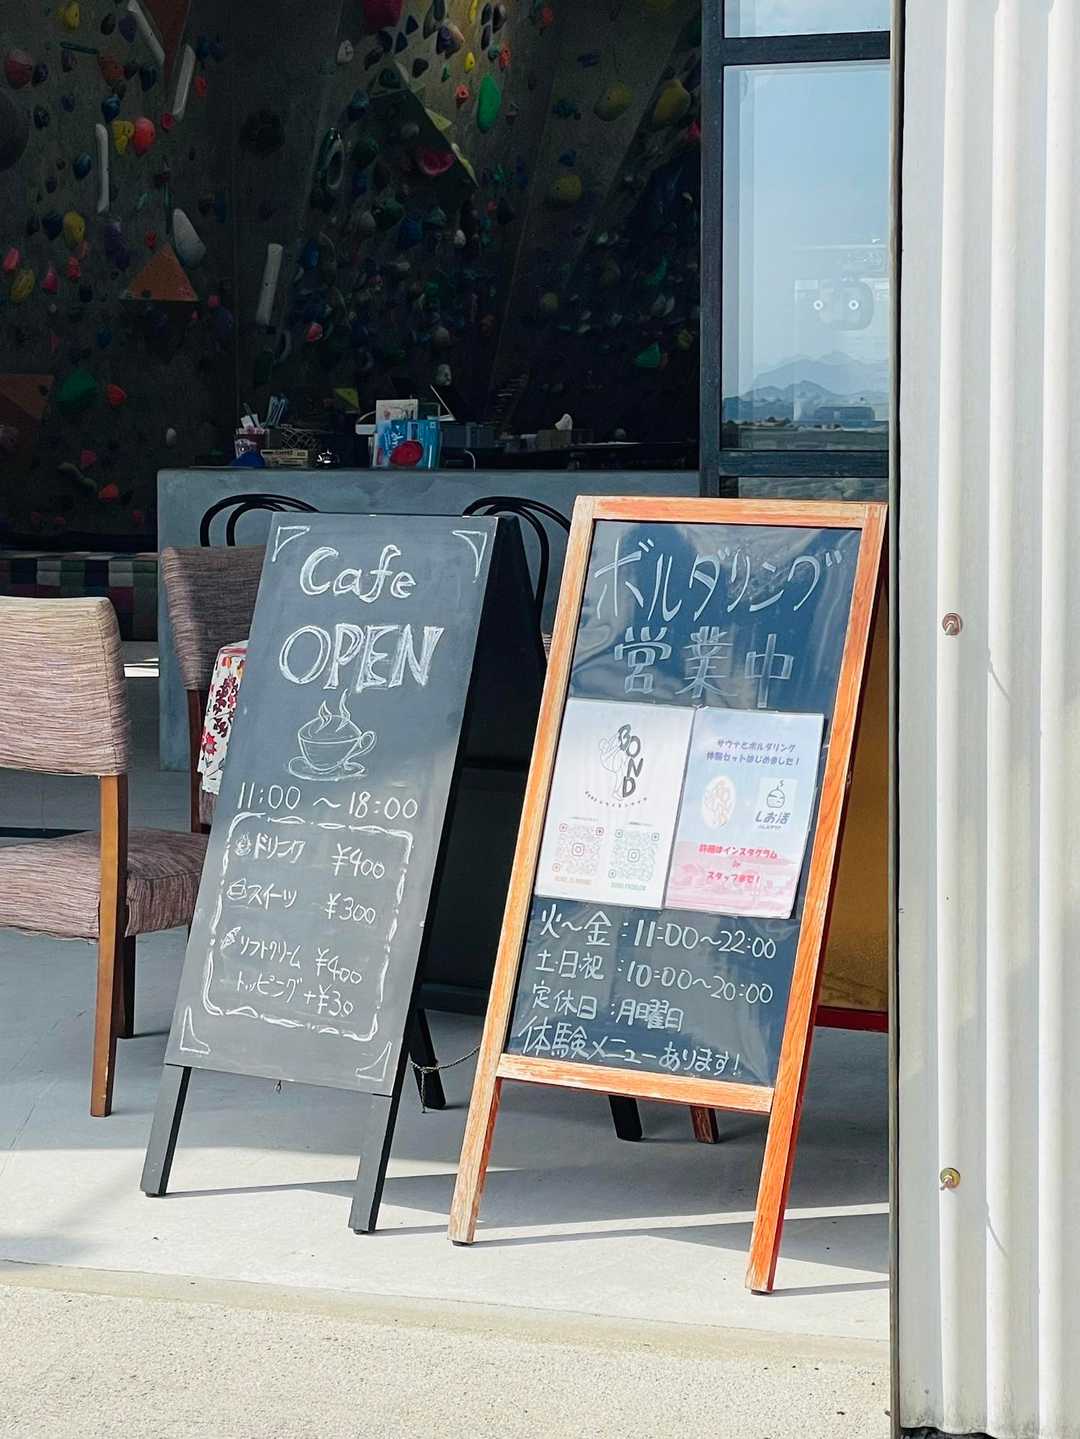 Cafe
OPEN
11:00 ～ 18:00
ドリンク ¥400
スイーツ ¥300
ソフトクリーム ¥400
トッピング +¥30
ボルダリング
営業中
BOND
サウナとボルダリング
体験セットはじめました！
しお活
詳細はインスタグラム
or
スタッフまで！
火～金：11:00～22:00
土・日・祝：10:00～20:00
定休日：月曜日
体験メニューあります！